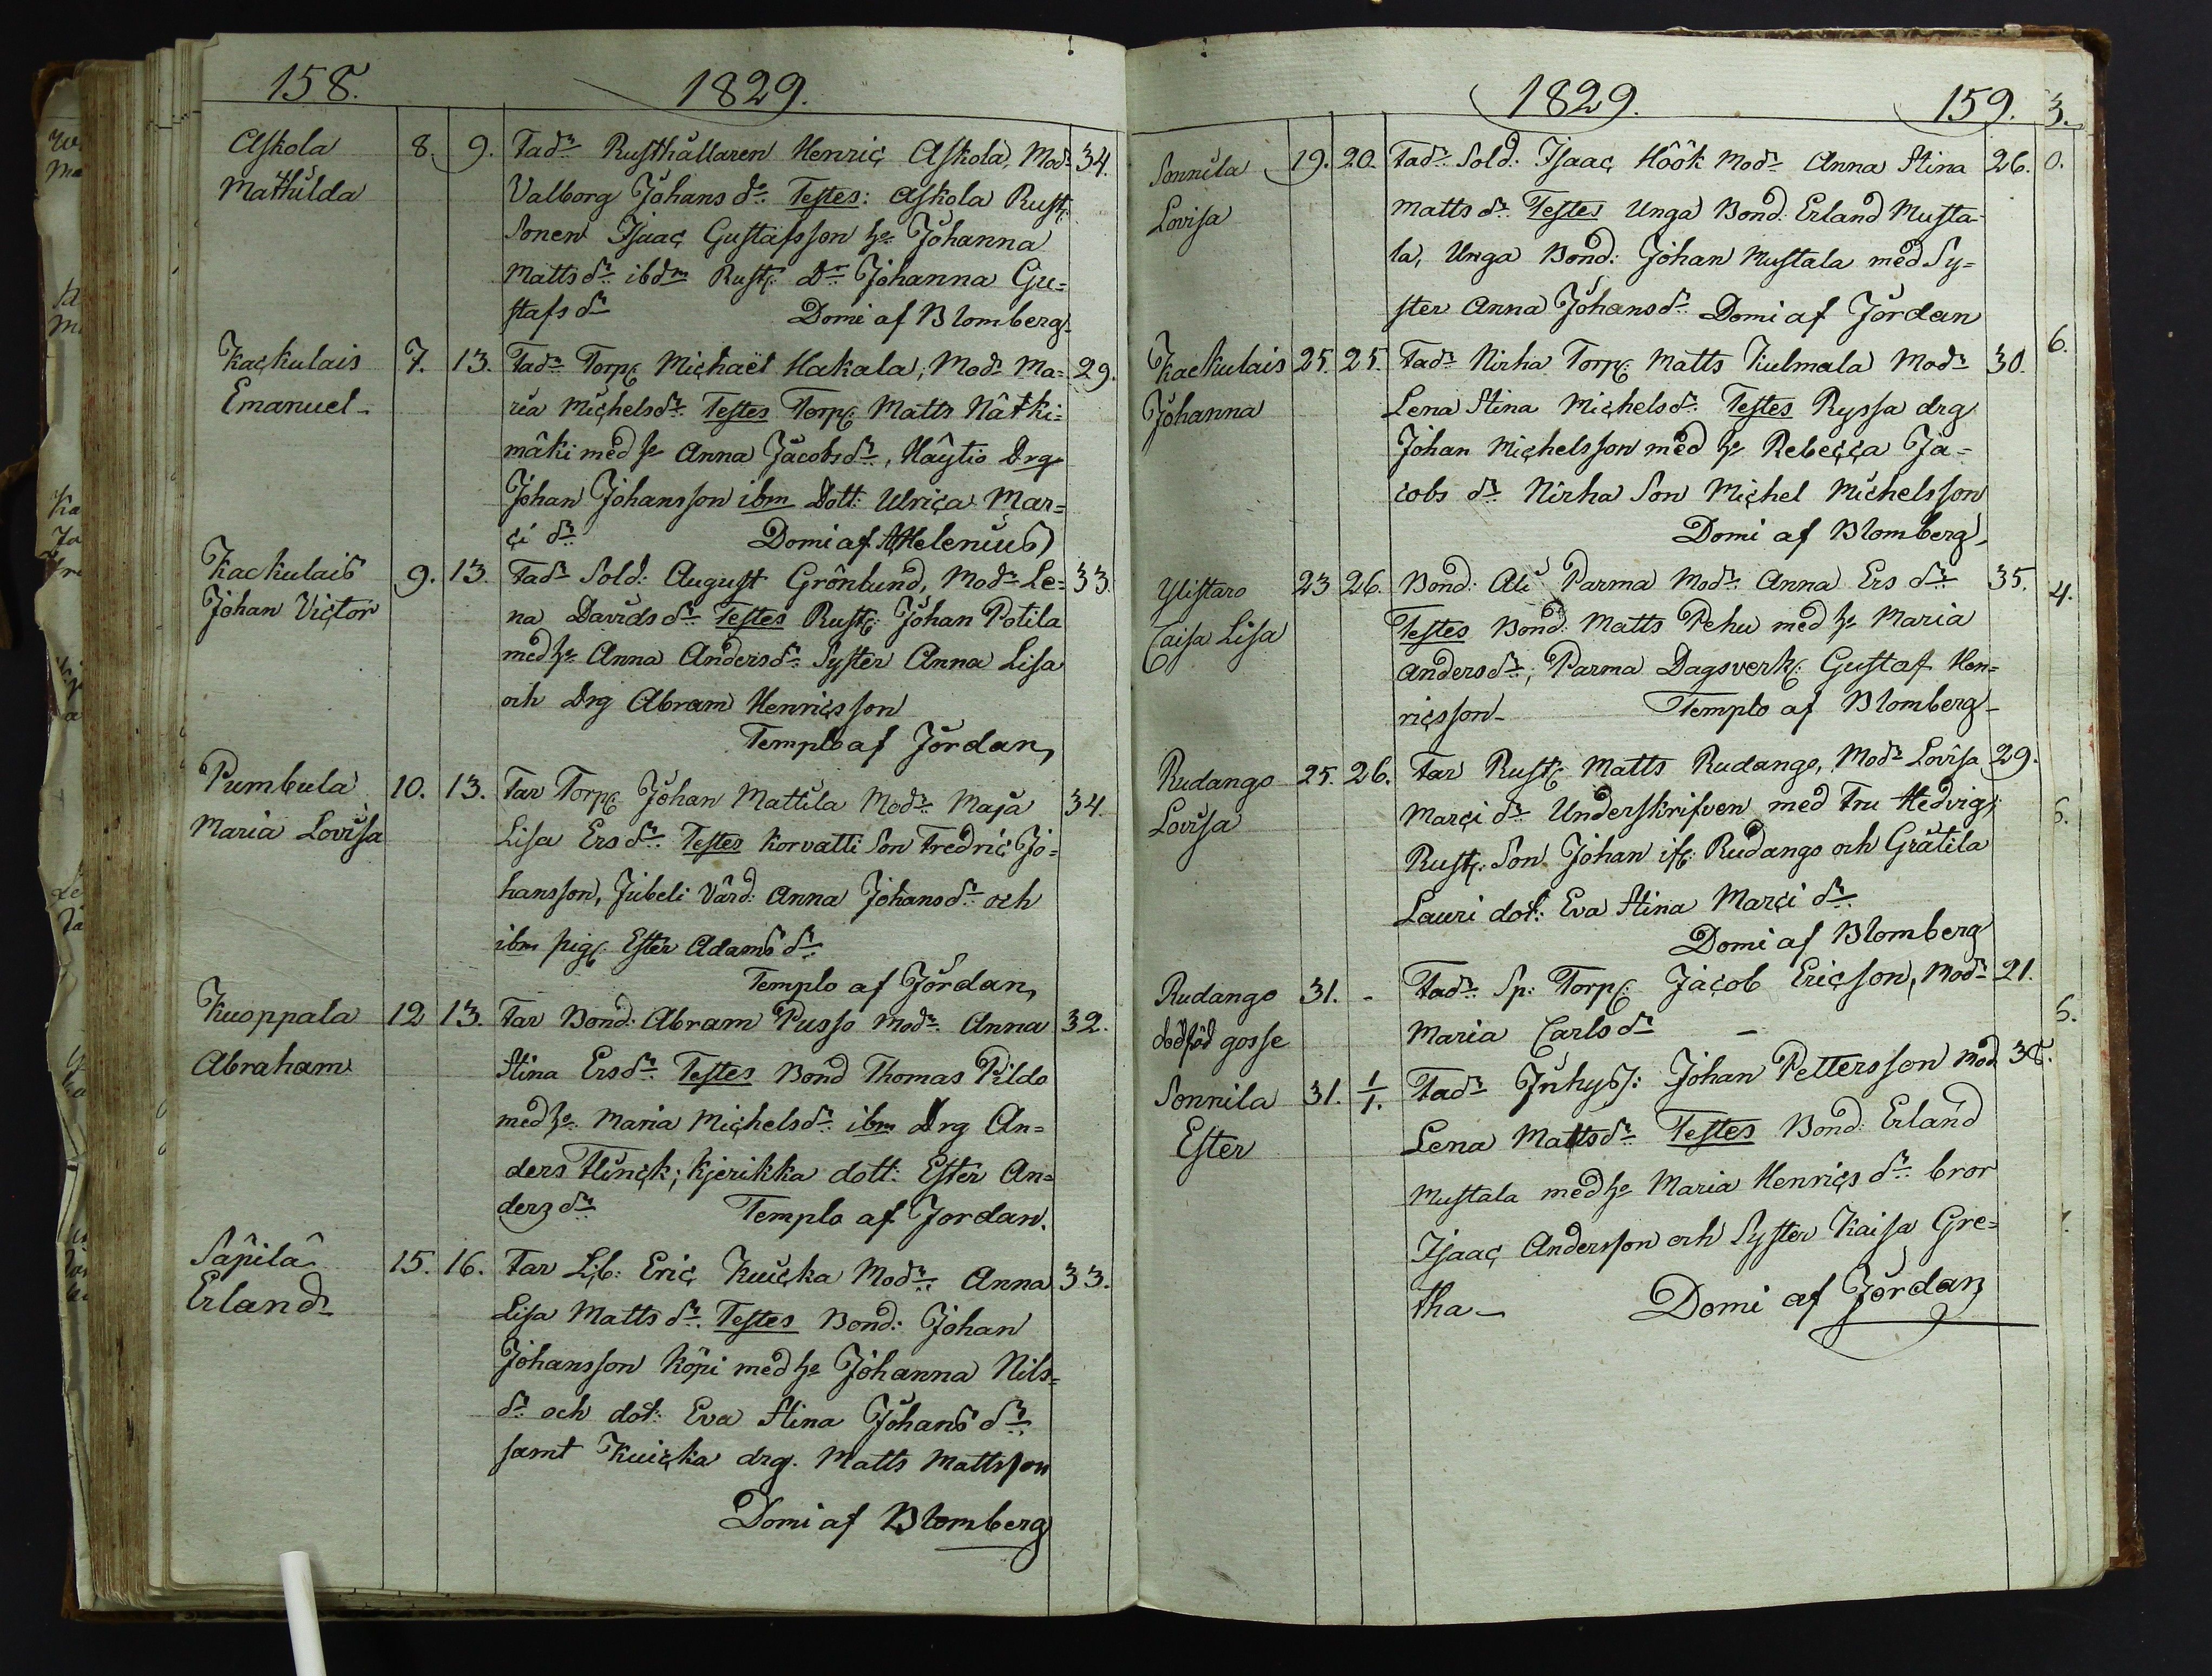 158. 1829.
Askola 8. 9. Fadr Rusthållaren Henric Askola, Modr 34.
Mathilda Valborg Johans dr Testes: Askola Rust.
Sonen Isaac Gustafsson hu Johanna
Matts dr ibdm Rusth: Dr Johanna Gu=
stafs dr Domi af Blomberg
Kackulais 7. 13. Fadr Torp: Michaël Hakala, Modr Ma= 29.
Emanuel ria Michelsdr Testes Torp: Matts Nätki=
mäki med hu Anna Jacobsdr, Häytiö Drg
Johan Johansson ibm Dott: Ulrica Mar=
ci dr Domi af Helenius
Kackulais 9. 13. Fadr Sold: August Grönlund, Modr Le= 33.
Johan Victor na Davidsdr Testes Rusth: Johan Potila
med hu Anna Andersdr Syster Anna Lisa
och Drg Abram Henricsson
Templo af Jordan
Pumbula 10. 13. Far Torp: Johan Mattila Modr Maja 34.
Maria Lovisa Lisa Ersdr Testes Korvatti Son Fredric Jo=
hansson, Jubeli Värd: Anna Johansdr och
ibm pig: Ester Adams dr
Templo af Jordan
Kuoppala 12 13. Far Bond: Abram Pusso Modr Anna 32.
Abraham Stina Ersdr Testes Bond Thomas Pildo
med hu Maria Michelsdr ibm Drg An=
ders Flinck; Kjerikka dott: Ester An=
ders dr Templo af Jordan.
Säpilä 15. 16. Far Eric Kuicka Modr Anna 33.
Erland Lisa Matts dr Testes Bond: Johan
Johansson Köpi med hu Johanna Nils=
dr och dot: Eva Stina Johans dr
samt Kuicka drg. Matts Mattsson
Domi af Blomberg
1829. 159. 3.
Sonnila 19. 20. Fadr Sold: Isaac Höök Modr Anna Stina 26. 0.
Lovisa Matts dr Testes Unga Bond: Erland Musta=
la, Unga Bond: Johan Mustala med Sy=
ster Anna Johansdr Domi af Jordan
6.
Kackulais 25. 25. Fadr Nirha Torp: Matts Kulmala Modr 30.
Johanna Lena Stina Michelsdr Testes Ryssa drg
Johan Michelsson med hu Rebecca Ja=
cobs dr Nirha Son Michel Michelsson
Domi af Blomberg
Ylistaro 23 26. Bond: Ali Parma Modr Anna Ers dr 35. 4.
Caisa Lisa Testes Bond: Matts Pehu med hu Maria
Andersdr; Parma Dagsverk: Gustaf Hen=
ricsson Templo af Blomberg
Rudango 25. 26. Far Rusth: Matts Rudango, Modr Lovisa 29.
Lovisa Marci dr Underskrifven med Fru Hedvig; 6.
Rusth: Son Johan Rudango och Grätila
Lauri dot: Eva Stina Marci dr
Domi af Blomberg
Rudango 31. - Fadr Sp: Torp: Jacob Ericsson, Modr 21.
dödföd gosse Maria Carls dr - 5.
Sonnila 31. 1/1. Fadr Inhys: Johan Pettersson Mod 38.
Ester Lena Mattsdr Testes Bond: Erland
Mustala med hu Maria Henrics dr bror
Isaac Andersson och Syster Kaisa Gre=
tha Domi af Jordan